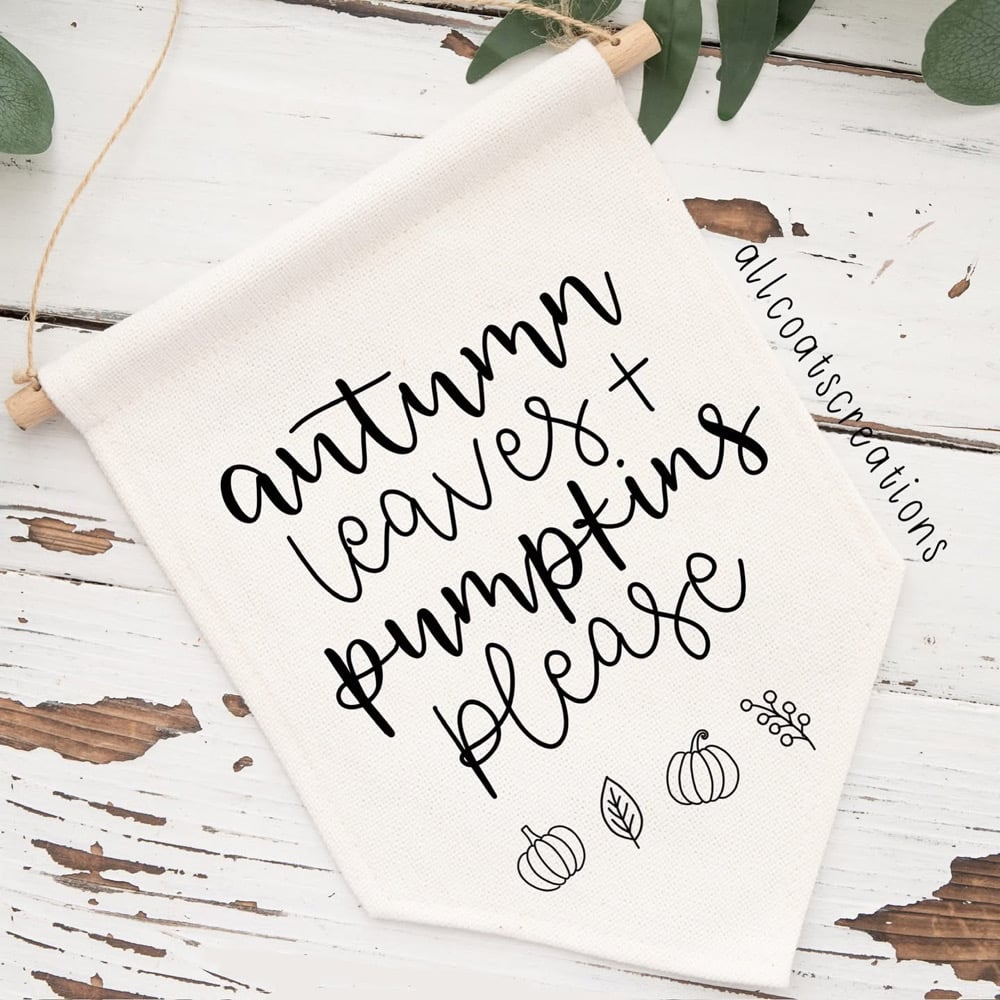 autumn
leaves +
pumpkins
please
allcoatscreations